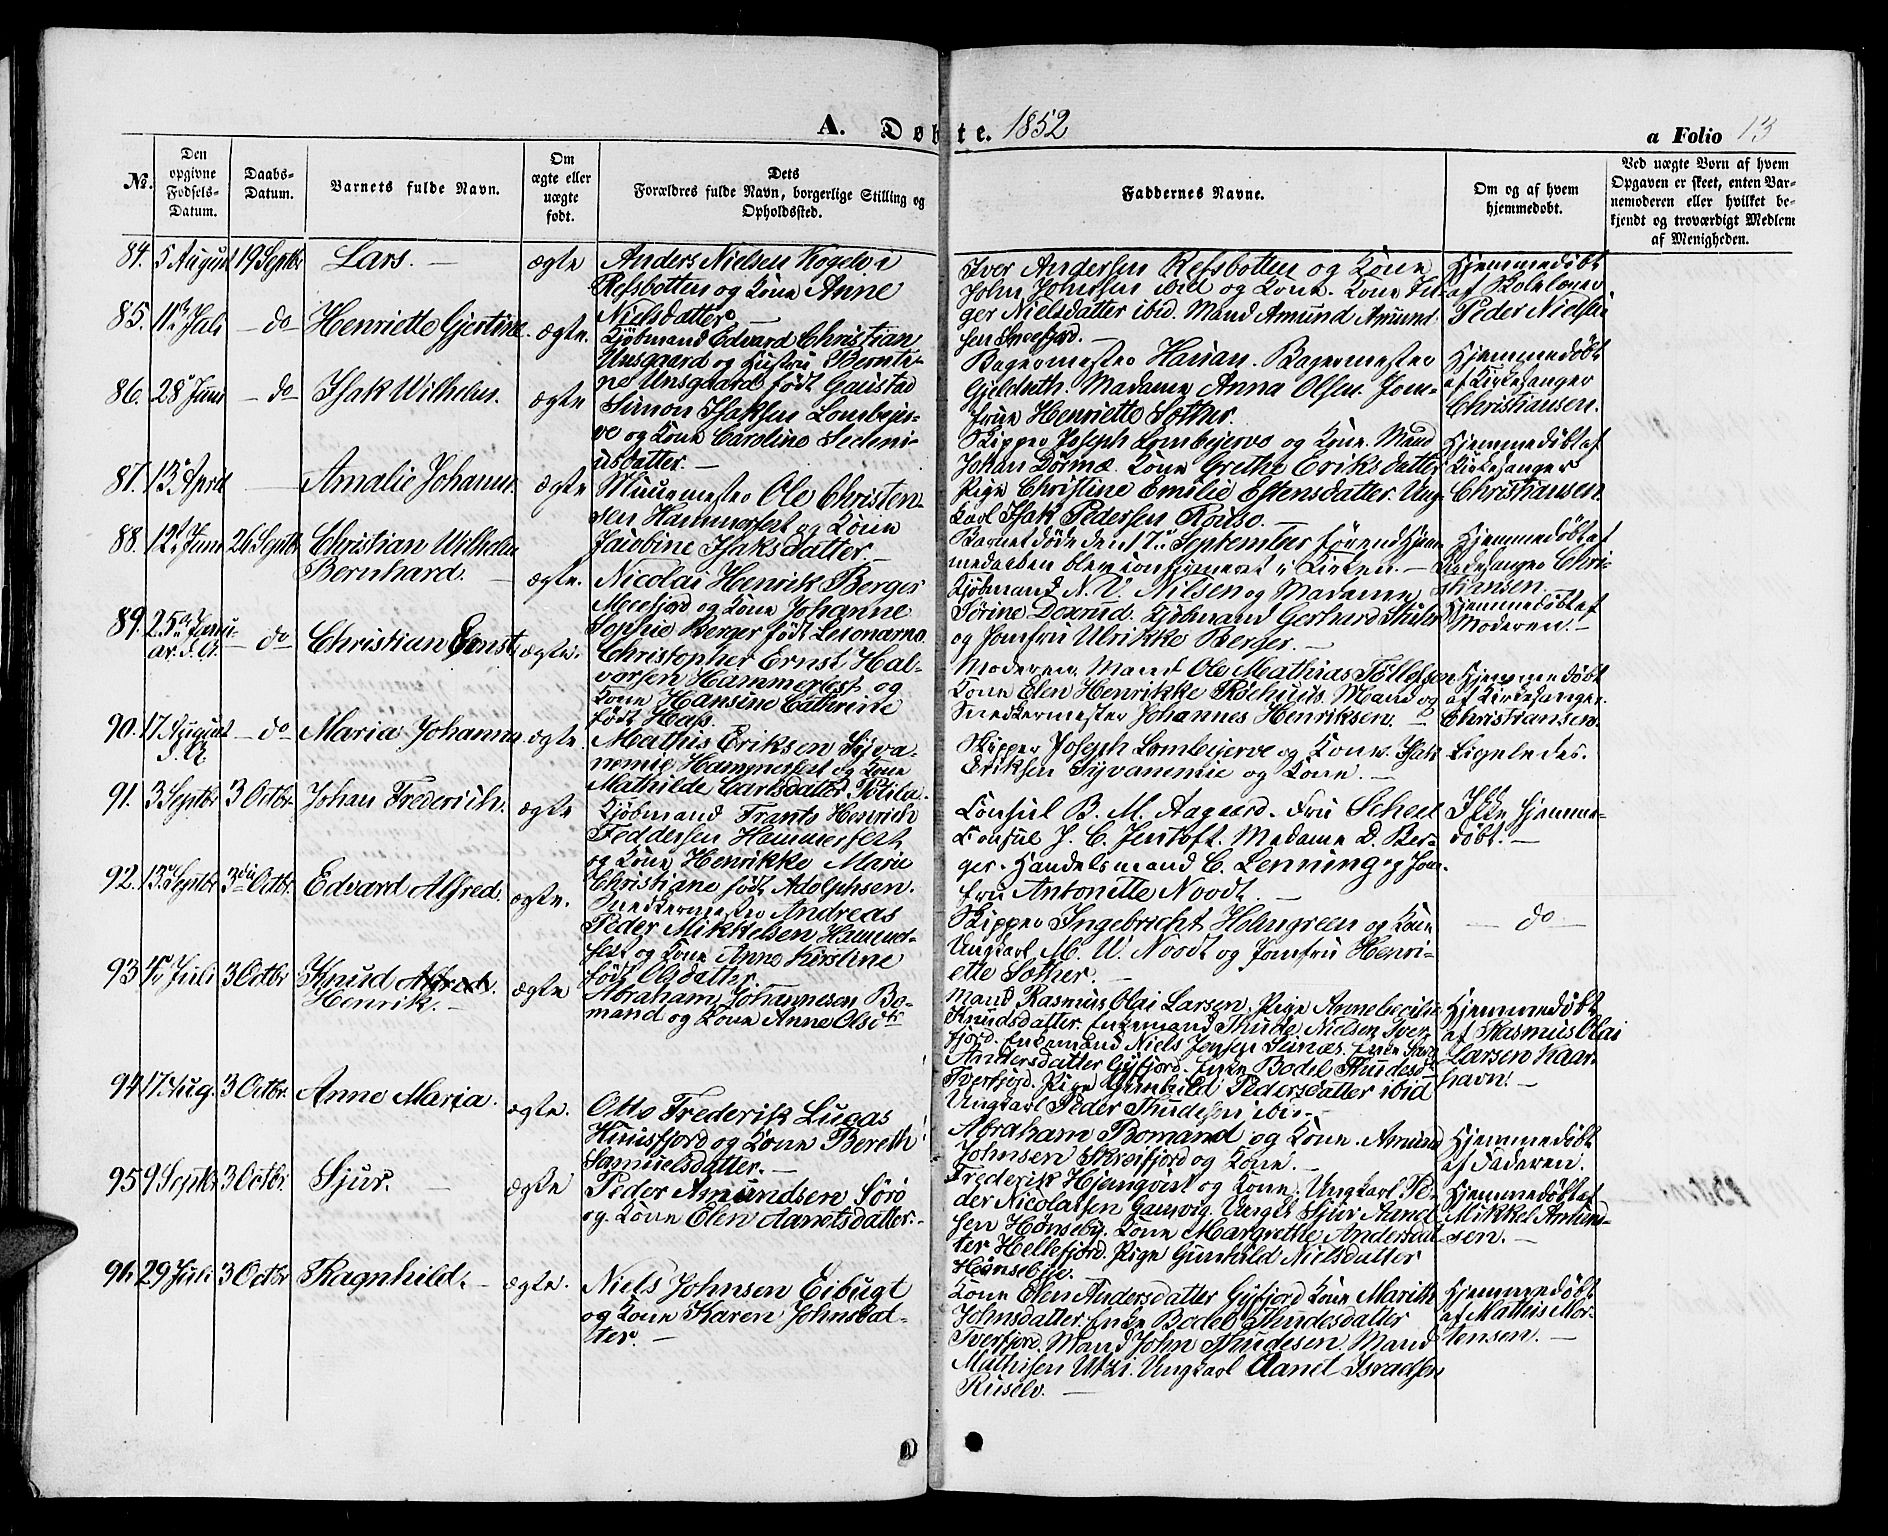 A. Døbte. 1852
a Folio 13
No.
Den opgivne Fødsels-Datum.
Daabs-Datum.
Barnets fulde Navn.
Om ægte eller uægte født.
Dets Forældres fulde Navn, borgerlige Stilling og Opholdssted.
Faddernes Navne.
Om og af hvem hjemmedøbt.
Ved uægte Børn af hvem Opgaven er skeet, enten Barnemoderen eller hvilket bekjendt og troværdigt Medlem af Menigheden.
84. 5 August 19 Septbr Lars. — ægte
Anders Nielsen Kogelv i
Refsbotten og Kone Anne
Nielsdatter
Iver Andersen Refsbotten og Kone
John Johnsen ibid og Kone. Kone In-
ger Nielsdatter ibid. Mand Amund Amund-
sen Sneefjord. —
Hjemmedøbt
af Skolelærer
Peder Nielsen
85. 11te Juli — do — Henriette Gjertine. ægte.
Kjøbmand Edvard Christian
Unsgaard og Hustru Bernti-
ne Unsgaard født Gaustad
Bagermester Hauan. Bagermester
Gjeldseth. Madame Anna Olsen. Jom-
frue Henriette Sother.
Hjemmedøbt
af Kirkesanger
Christiansen.
86. 28 Juni — do — Isak Wilhelm. ægte
Simon Isaksen Lombejer-
vo og Kone Caroline Sedeni-
usdatter. —
Skipper Joseph Lombejervo og Kone. Mand
Johan Dørmæ. Kone Grethe Eriksdatter
Pige Christine Emilie Estensdatter. Ung-
karl Isak Pedersen Rouso. —
Hjemmedøbt af
Kirkesanger
Christiansen
87. 13 April — Amalie Johanne. ægte
Muurmester Ole Christen-
sen Hammerfest og Kone
Jacobine Isaksdatter. —
Barnet døde den 17de September førend Hjem-
medaaben blev confirmeret i Kirken. —
Hjemmedøbt af
Kirkesanger Chri-
stiansen.
88. 12te Juni 26 Septbr Christian Wilhelm
Bernhard. — ægte.
Nicolai Henrik Berger
Meefjord og Kone Johanne
Sophie Berger født Leionarna
Kjøbmand N. V. Nilsen og Madame
Sørine Doxrud. Kjøbmand Gerhard Stuer
og Jomfru Ulrikke Berger. —
Hjemmedøbt af
Moderen. —
89. 25de Janu-
ar d. A. — do Christian Ernst. ægte.
Christopher Ernst Hal-
vorsen Hammerfest og
Kone Hansine Cathrine
født Hass.
Moderen, Mand Ole Mathias Tøllefsen
Kone Elen Henrikke Rochuus. Mand og
Snedkermester Johannes Henriksen. —
Hjemmedøbt
af Kirkesanger
Christiansen.
90. 17 August
d. A. — do — Maria Johanna ægte.
Mathis Eriksen Syva-
nemie Hammerfest og Kone
Mathilde Carlsdatter
Skipper Joseph Lombejerve og Kone. Isak
Eriksen Syvammie og Kone. —
Ligeledes.
91. 3 Septbr 3 Octbr. Johan Frederich. ægte
Kjøbmand Frants Henrich
Feddersen Hammerfest
og Kone Henrikke Marie
Christiane født Adolphsen.
Consul B. M. Aagaard. Fru Scheel
Consul J. C. Jentoft. Madame D. Ber-
ger. Handelsmand C. Lenning og Jom-
fru Antonette Noodt. —
Ikke hjemme-
døbt. —
92. 13de Septbr 3die Octbr. Edvard Alfred. ægte.
Snedkermester Andreas
Peder Mikkelsen Hammer-
fest og Kone Anne Kirstine
født Olsdatter.
Skipper Ingebrecht Holmgreen og Kone
Ungkarl M. U. Noodt og Jomfru Henri-
ette Sother. —
— do —
93 Juli 3 Octbr Knud Alfred.
Henrik. — ægte
Abraham Johannesen Bo-
mand og Kone Anne Olsdtr
Mand Rasmus Olai Larsen. Pige Anne Cecilie
Knudsdatter. Enkemand Thude Nielsen Tver-
fjord. Enkemand Niels Jensen Seinæs. Enke Sara
Andersdatter Gyfjord. Enke Bodel Thudesdtr
Tverfjord. Pige Gunhild Pedersdatter ibid
Ungkarl Peder Thudesen ibid. —
Hjemmedøbt
af Rasmus Olai
Larsen Kaar-
havn. —
94 17 Aug. 3 Octbr. Anne Maria. ægte.
Otto Frederik Lucas
Knivsfjord og Kone Bereth
Samuelsdatter. —
Abraham Bomand og Kone. Amund
Johnsen Skreifjord og Kone. —
Hjemmedøbt
af Faderen.
95 9 Septbr 3 Octbr. Sjur. — ægte
Peder Amundsen Sørø
og Kone Elen Aanetsdatter. —
Frederik Hjemqvist og Kone. Ungkarl Pe-
der Nicolaisen Gamvig. Unge Sjur Aand-
sen Hønseby. Kone Margrethe Andersdat-
ter Hellefjord. Pige Gunhild Nielsdatter
Hønsebye.
Hjemmedøbt af
Mikkel Amund-
sen. —
96. 29 Juli 3 Octbr Ragnhild. — ægte.
Niels Johnsen Eibugt
og Kone Karen Johnsdat-
ter. —
Kone Elen Andersdatter Gyfjord Kone Marith
Johnsdatter. Enke Bodel Thudesdatter
Tverfjord. Mand John Thudesen. Mand
Mathisen Utzi. Ungkarl Aanet Israelsen
Ruselv. —
Hjemmedøbt
af Mathis Mor-
tensen. —